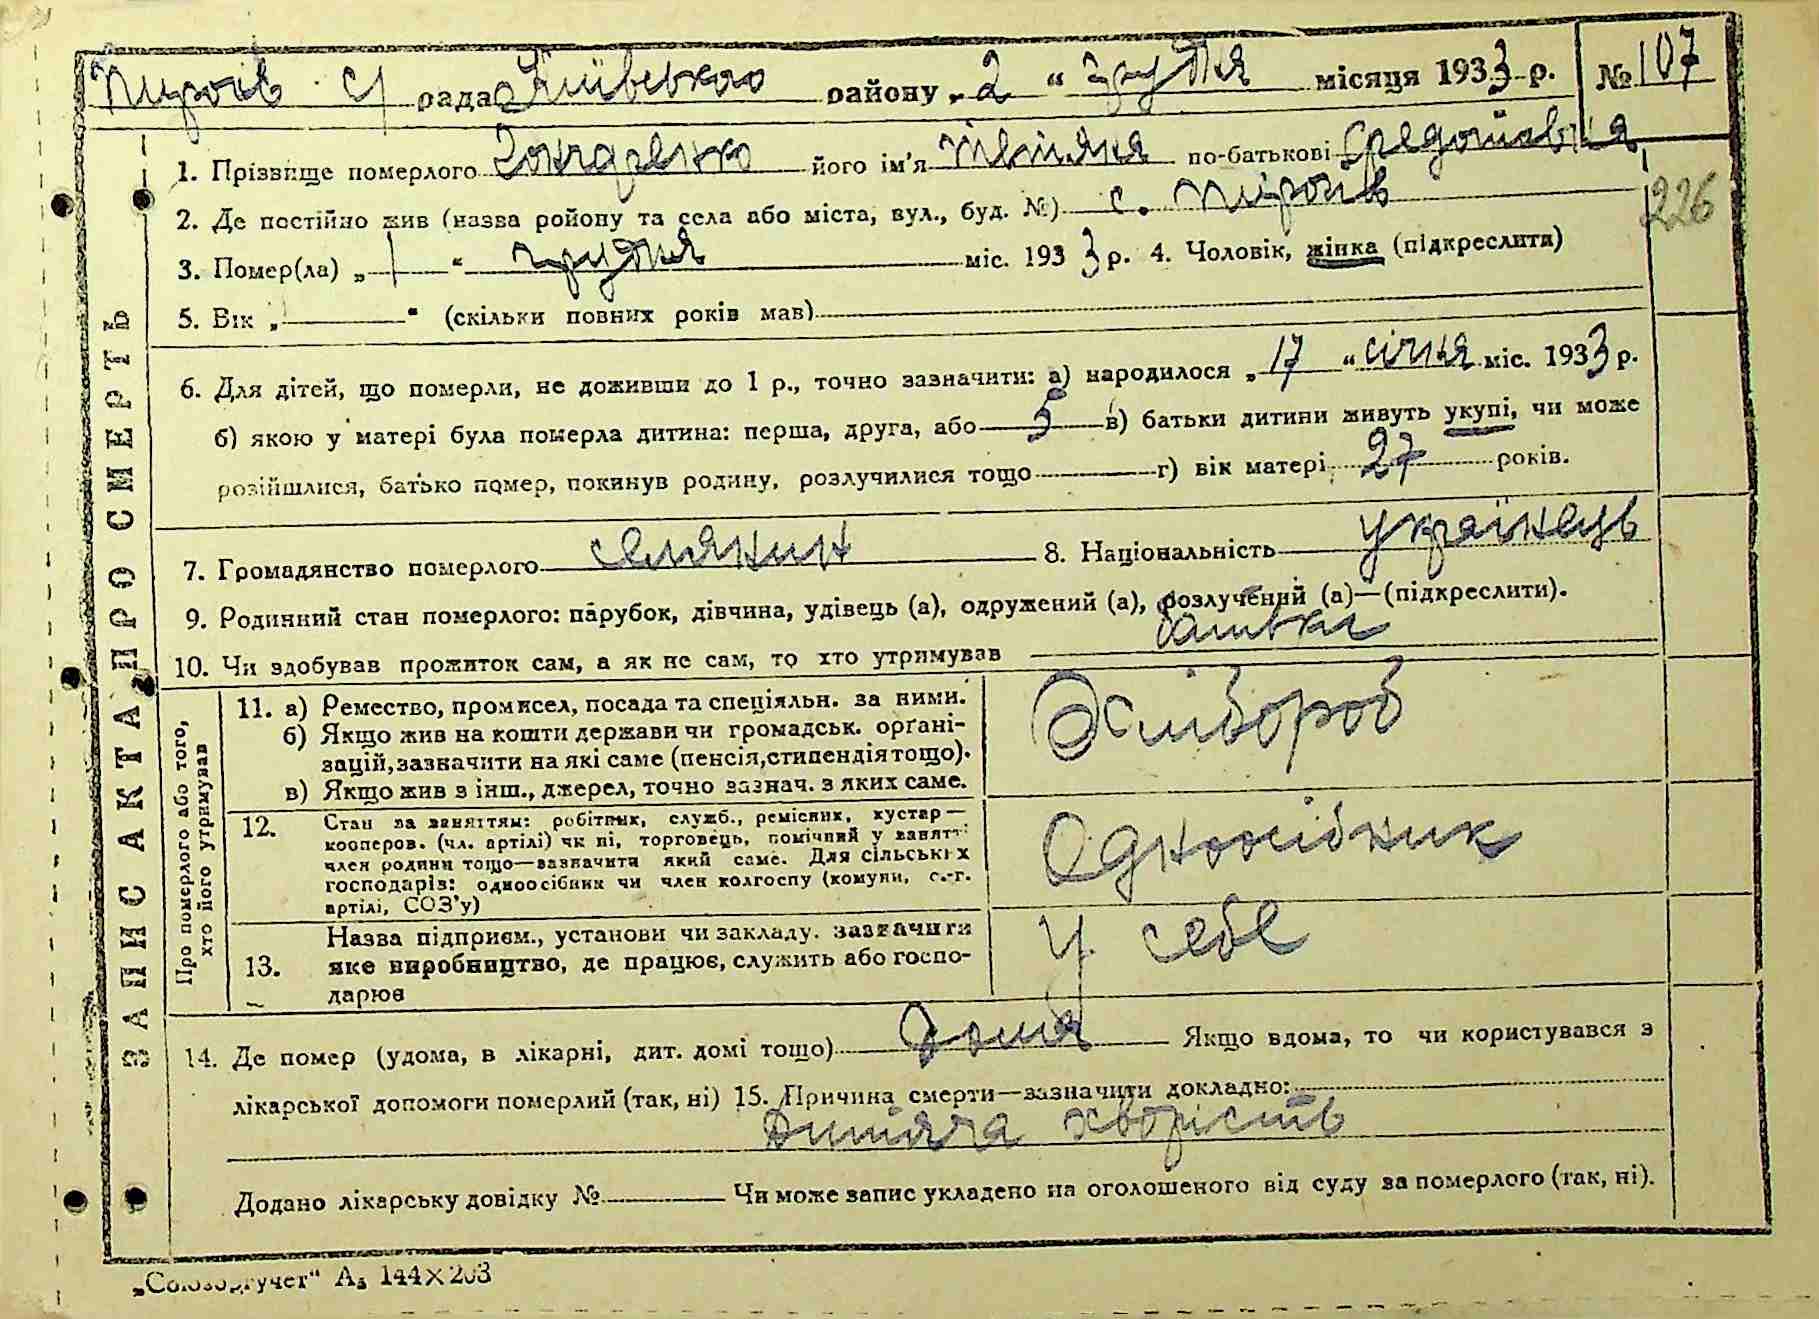 Пирогів с/ рада Київського району „2" грудня місяця 1933 р. № 107
1. Прізвище померлого його ім'я по-батькові
226
2. Де постійно жив (назва ройону та села або міста, вул., буд. №) с. Пирогів
3. Помер(ла) „1" грудня міс. 1933 р. 4. Чоловік, жінка (підкреслити)
5. Вік „ " (скільки повних років мав)
6. Для дітей, що померли, не доживши до 1 р., точно зазначити: а) народилося „17" січня міс. 1933 р.
б) якою у матері була померла дитина: перша, друга, або 5 в) батьки дитини живуть укупі, чи може
розійшлися, батько помер, покинув родину, розлучилися тощо г) вік матері 27 років.
7. Громадянство померлого селянин 8. Національність українець
9. Родинний стан померлого: парубок, дівчина, удівець (а), одружений (а), розлучений (а)—(підкреслити).
10. Чи здобував прожиток сам, а як не сам, то хто утримував батьки
ЗАПИС АКТА ПРО СМЕРТЬ
Про померлого або того,
хто його утримував
11. а) Ремество, промисел, посада та спеціяльн. за ними.
б) Якщо жив на кошти держави чи громадськ. орґані-
зацій, зазначити на які саме (пенсія, стипендія тощо).
в) Якщо жив з інш., джерел, точно зазнач. з яких саме.
Хлібороб
12. Стан за заняттям: робітник, служб., ремісник, кустар—
кооперов. (чл. артілі) чи ні, торговець, помічний у занятті
член родини тощо—зазначити який саме. Для сільських
господарів: одноосібник чи член колгоспу (комуни, с.-г.
артілі, СОЗ'у)
Одноосібник
13. Назва підприєм., установи чи закладу. зазначити
яке виробництво, де працює, служить або госпо-
дарює
У себе
14. Де помер (удома, в лікарні, дит. домі тощо) дома Якщо вдома, то чи користувався з
лікарської допомоги померлий (так, ні) 15. Причина смерти—зазначити докладно:
Дитяча хворість
Додано лікарську довідку № Чи може запис укладено на оголошеного від суду за померлого (так, ні).
„Союзоргучет" А₅ 144×203